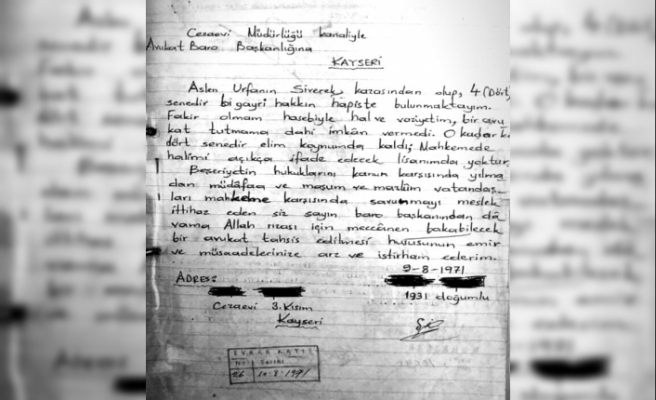 Cezaevi Müdürlüğü kanaliyle
Avukat Baro Başkanlığına
KAYSERİ
Aslen Urfanın Siverek kazasından olup, 4 (Dört)
senedir bigayri hakkın hapiste bulunmaktayım.
Fakir olmam hasebiyle hal ve vaziyetim, bir avu
kat tutmama dahi imkân vermedi. O kadar ki
dört senedir elim koynumda kaldı; Mahkemede
halimi açıkça ifade edecek lisanımda yoktur.
Beşeriyetin hukuklarını kanun karşısında yılma
dan müdâfaa ve masum ve mazlûm vatandaş-
ları mahkeme karşısında savunmayı meslek
ittihaz eden siz sayın baro başkanından dâ
vama Allah rızası için meccânen bakabilecek
bir avukat tahsis edilmesi hususunun emir
ve müsaadelerinize arz ve istirham ederim.
9-8-1971
ADRES:
1931 doğumlu
Cezaevi 3. Kısım
Kayseri
EVRAK KAYIT
No: Tarihi
10.8.1971